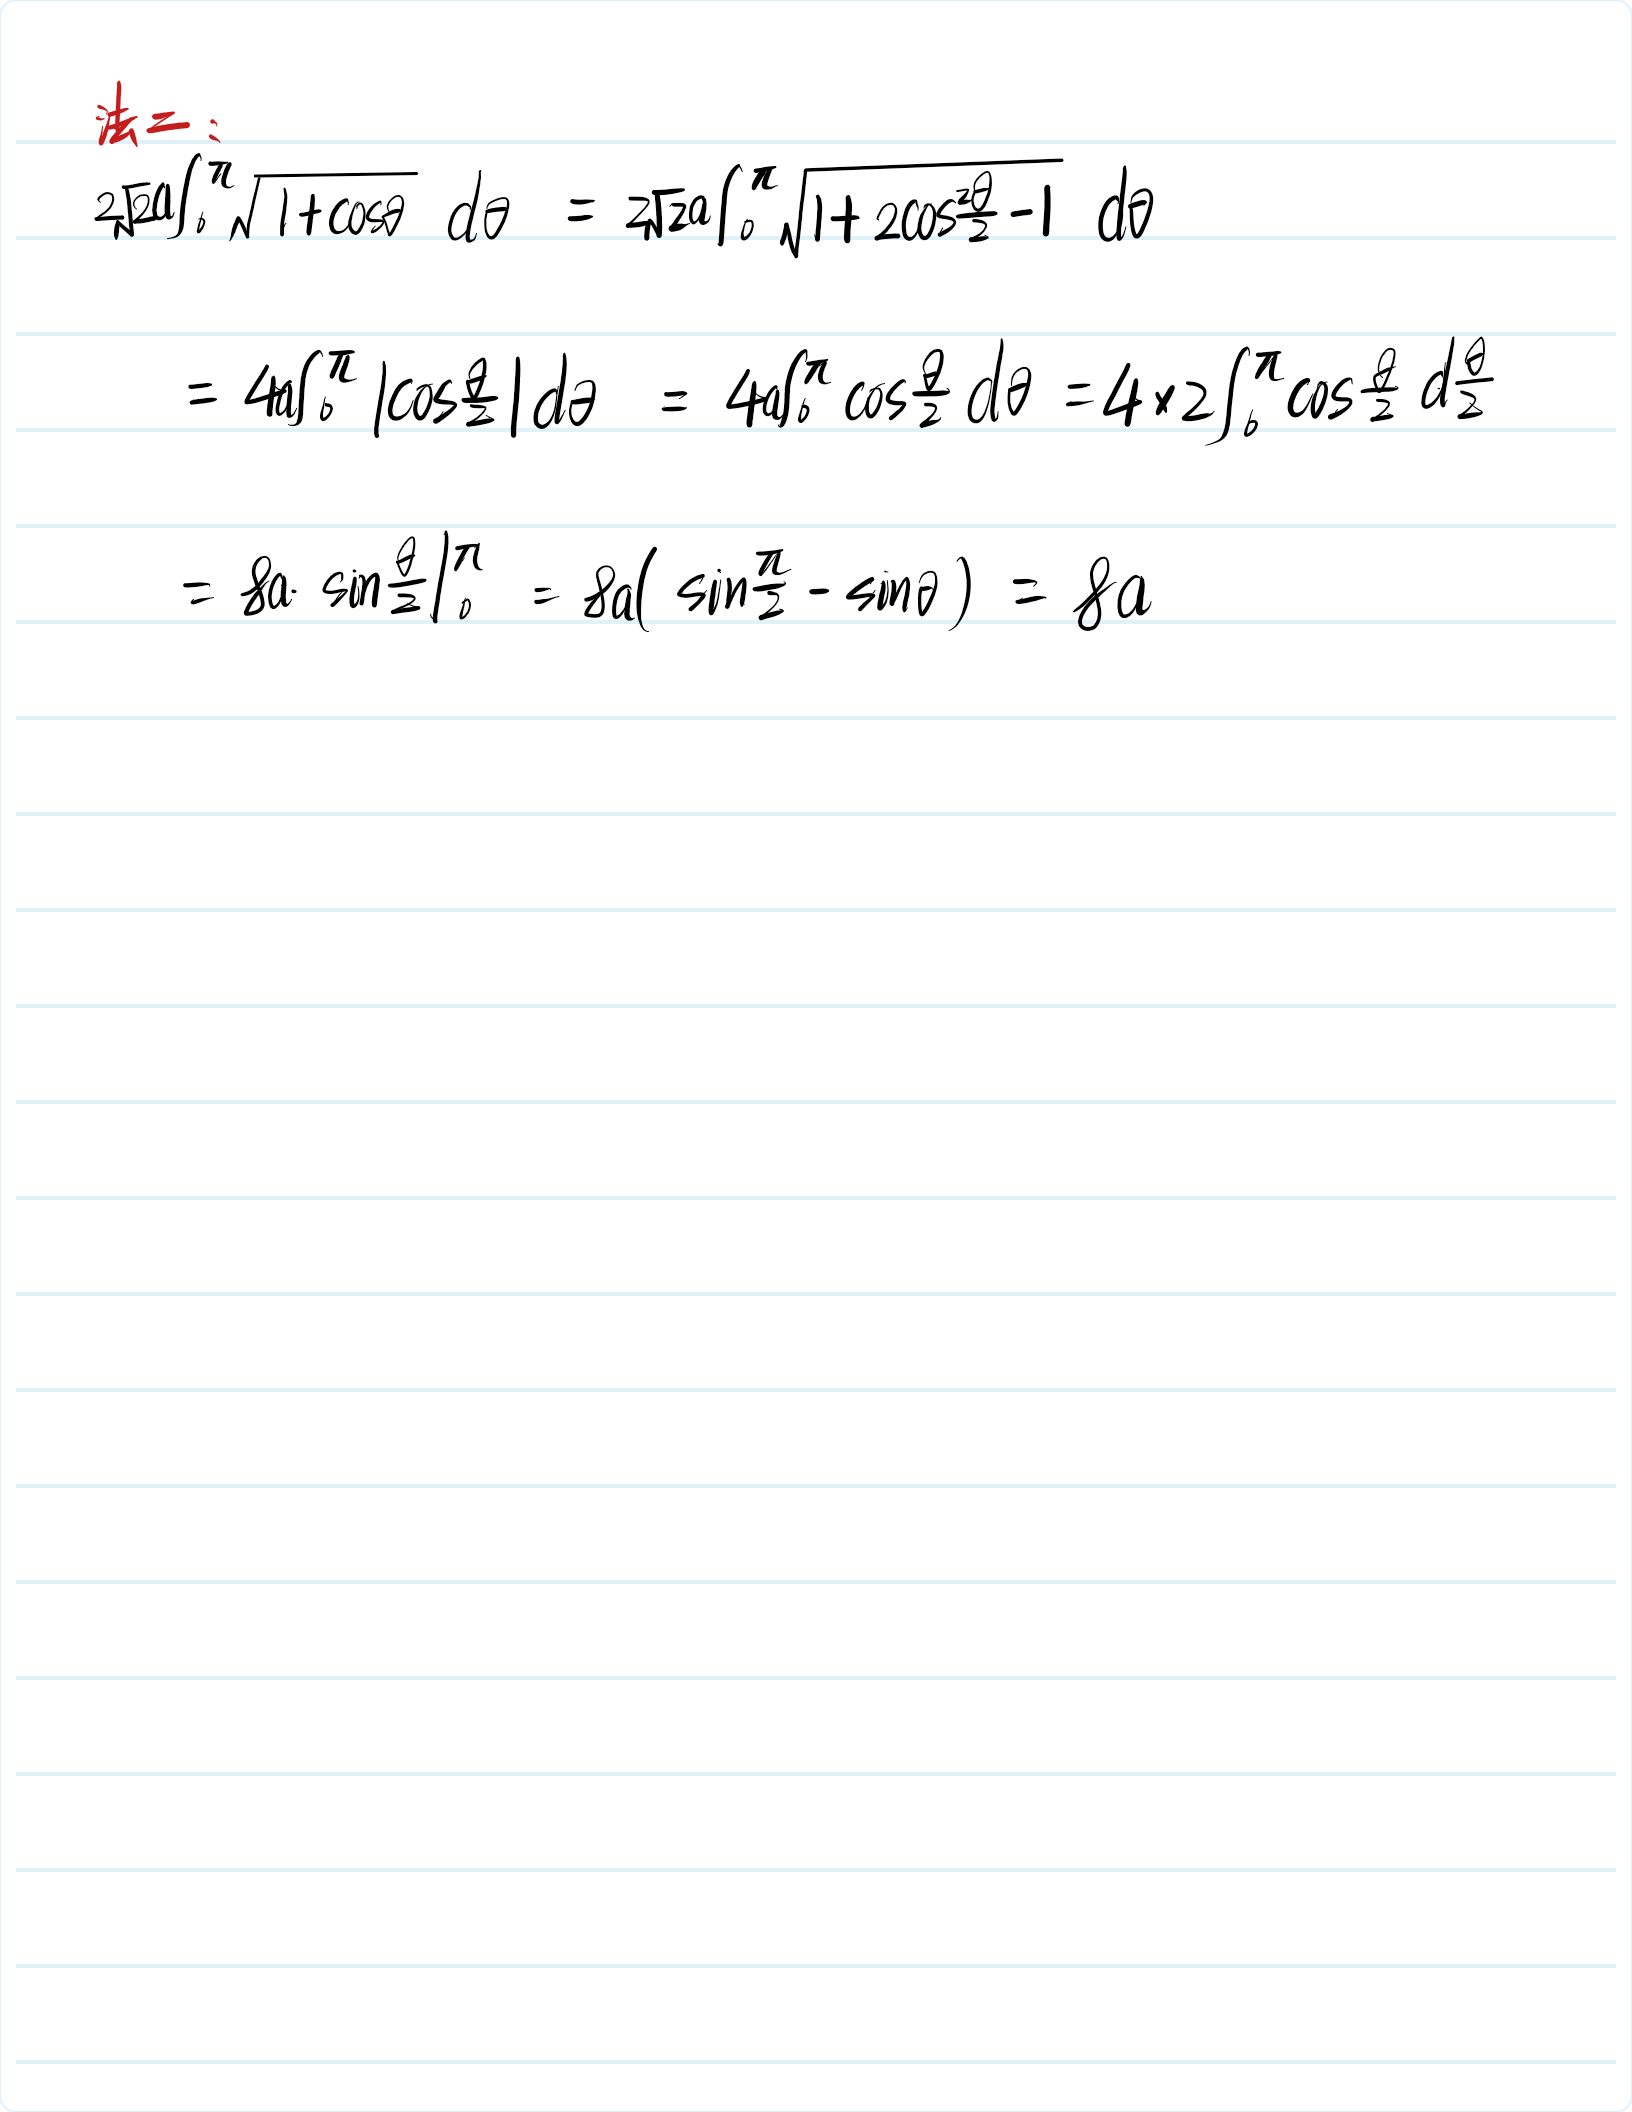 法二：
2√2a∫₀^π √(1+cosθ) dθ = 2√2a∫₀^π √(1+2cos²(θ/2)-1) dθ
= 4a∫₀^π |cos(θ/2)| dθ = 4a∫₀^π cos(θ/2) dθ = 4×2∫₀^π cos(θ/2) d(θ/2)
= 8a· sin(θ/2)|₀^π = 8a( sin(π/2) - sinθ ) = 8a